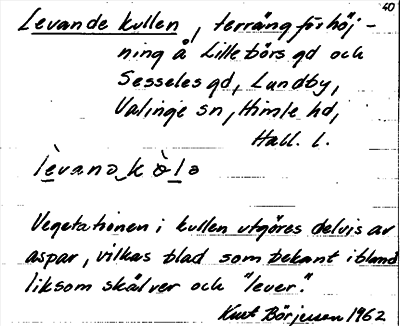 40
Levande kullen, terrängförhöj-
ning å Lillebörs gd och
Sesseles gd, Lundby,
Valinge sn, Himle hd,
Hall. l.
lèvanə kòlə
Vegetationen i kullen utgöres delvis av
aspar, vilkas blad som bekant ibland
liksom skälver och "lever".
Kurt Börjesson 1962